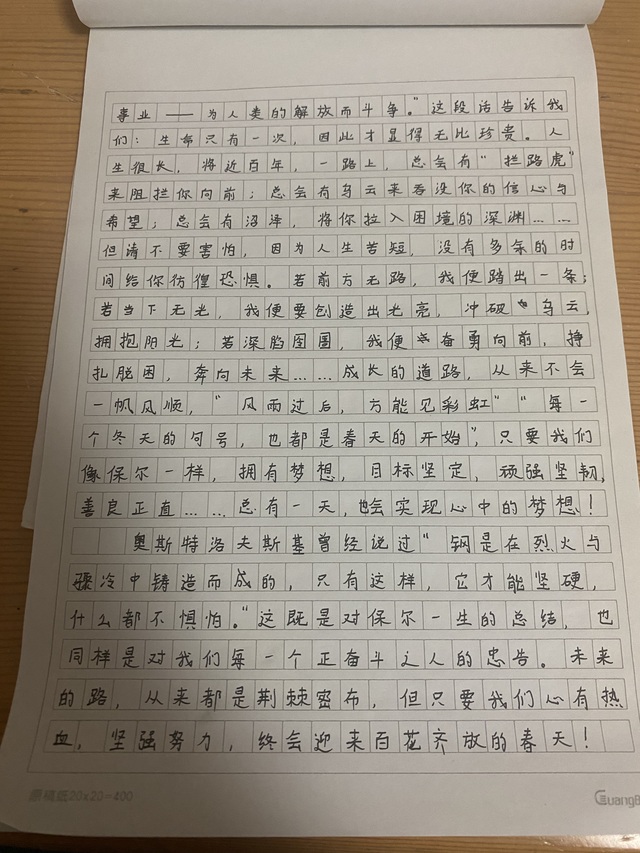 事业——为人类的解放而斗争。”这段话告诉我
们：生命只有一次，因此才显得无比珍贵。人
生很长，将近百年，一路上，总会有“拦路虎”
来阻拦你向前；总会有乌云来吞没你的信心与
希望；总会有沼泽，将你拉入困境的深渊……
但请不要害怕，因为人生苦短，没有多余的时
间给你彷徨恐惧。若前方无路，我便踏出一条；
若当下无光，我便要创造出光亮，冲破乌云，
拥抱阳光；若深陷囹圄，我便奋勇向前，挣
扎脱困，奔向未来……成长的道路，从来不会
一帆风顺，“风雨过后，方能见彩虹”“每一
个冬天的句号，也都是春天的开始”，只要我们
像保尔一样，拥有梦想，目标坚定，顽强坚韧，
善良正直……总有一天，会实现心中的梦想！
奥斯特洛夫斯基曾经说过“钢是在烈火与
骤冷中铸造而成的，只有这样，它才能坚硬，
什么都不惧怕。”这既是对保尔一生的总结，也
同样是对我们每一个正奋斗之人的忠告。未来
的路，从来都是荆棘密布，但只要我们心有热
血，坚强努力，终会迎来百花齐放的春天！
原稿纸20×20=400
GuangB